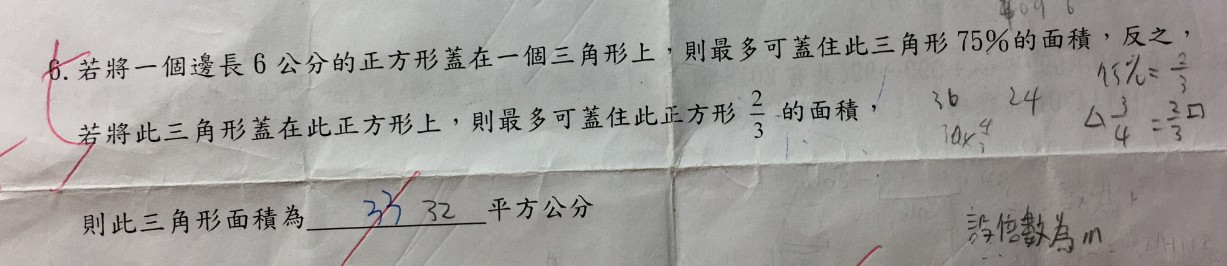 6. 若將一個邊長 6 公分的正方形蓋在一個三角形上，則最多可蓋住此三角形 75%的面積，反之，
75% = 2/3
若將此三角形蓋在此正方形上，則最多可蓋住此正方形 2/3 的面積，
36 24
△ 3/4 = 2/3 □
則此三角形面積為 32 平方公分
設倍數為 m